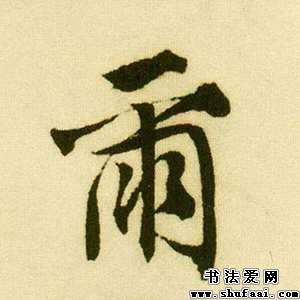 爾
书法爱网
www.shufaai.com